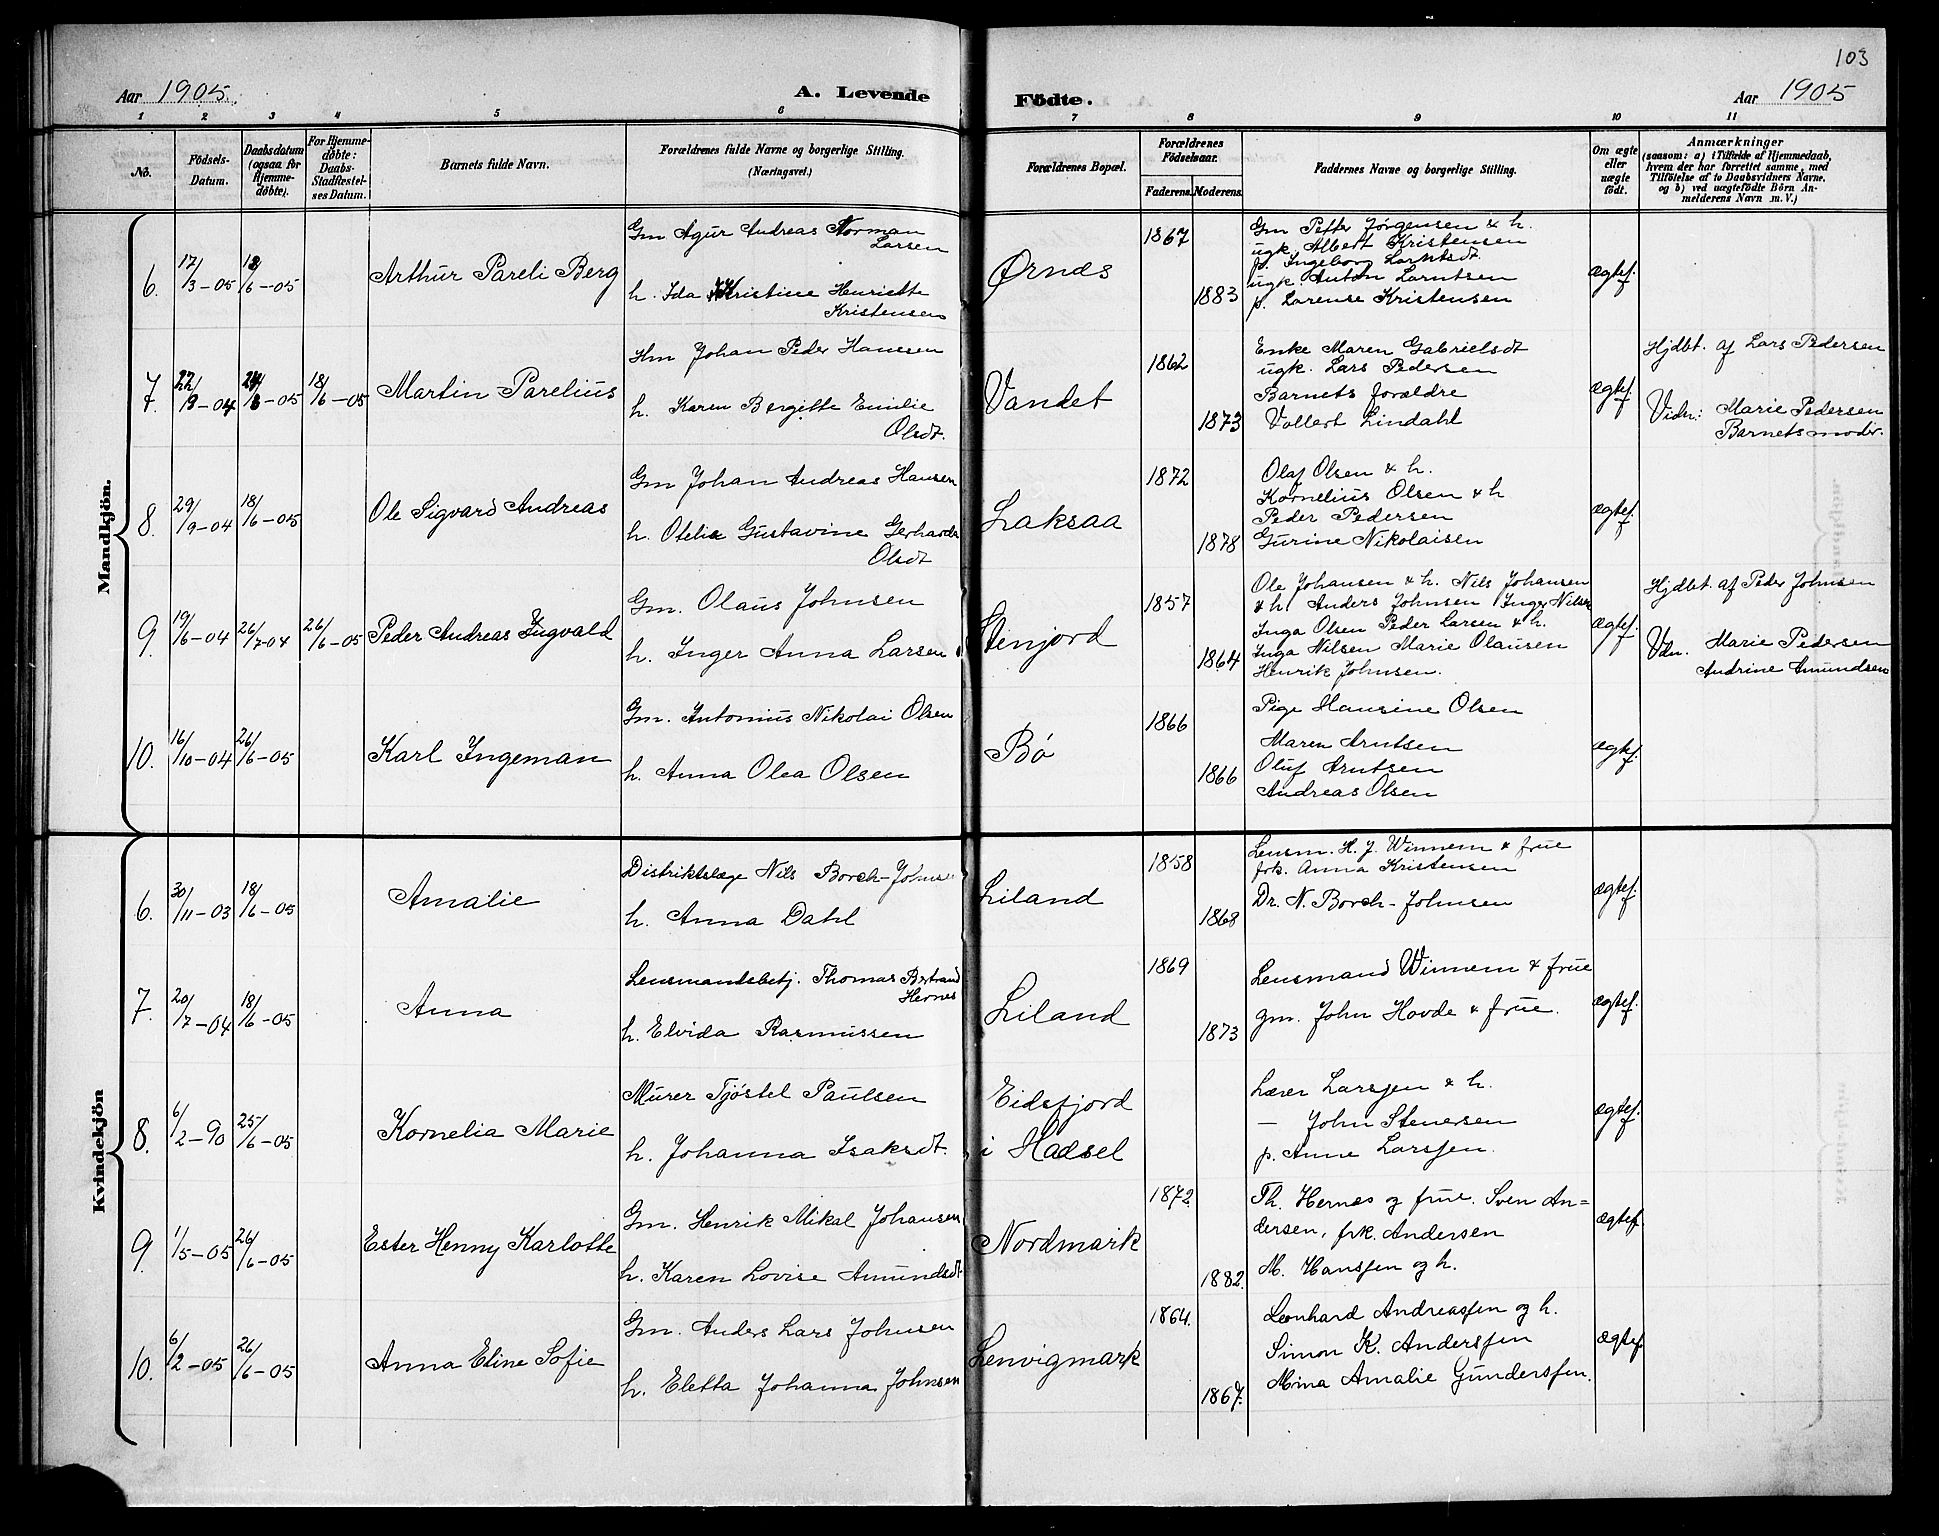 103
Aar 1905.
A. Levende
Födte.
Aar 1905
1 2 3 4 5 6 7 8 9 10 11
No.
Födsels-
Datum.
Daabsdatum
(ogsaa for
Hjemme-
døbte).
For Hjemme-
døbte:
Daabs-
Stadfæstel-
ses Datum.
Barnets fulde Navn.
Forældrenes fulde Navne og borgerlige Stilling.
(Næringsvei.)
Forældrenes Bopæl.
Forældrenes
Födselsaar.
Faderens. Moderens.
Faddernes Navne og borgerlige Stilling.
Om ægte
eller
uægte
födt.
Anmærkninger
(saasom: a) i Tilfælde af Hjemmedaab,
hvem der har forrettet samme, med
Tilföielse af to Daabsvidners Navne,
og b) ved uægtefödte Börn An-
melderens Navn m. V.)
Mandkjön.
6. 17/3-05 18/6-05
Arthur Pareli Berg
Gm Agur Andreas Norman
Larsen
h. Ida Kristine Henriette
Kristensen
Ørnes
1867
1883
Gm Petter Jørgensen & h.
ugk. Albert Kristensen
p. Ingeborg Larntsdt.
ugk. Anton Larntsen
p. Larense Kristensen
ægtef.
7. 22/9-04 24/8-05 18/6-05
Martin Parelius
Hm Johan Peder Hansen
h. Karen Bergitte Emilie
Olsdt.
Vandet
1862
1873
Enke Maren Gabrielsdt
ugk. Lars Pedersen
Barnets forældre
Vollert Lindahl
ægtef.
Hjdbt. af Lars Pedersen
Vidn: Marie Pedersen
Barnets moder.
8. 29/9-04 18/6-05
Ole Sigvard Andreas
Gm Johan Andreas Hansen
h. Otelie Gustavine Gerharda
Olsdt
Laksaa
1872
1878
Olaf Olsen & h.
Kornelius Olsen & h
Peder Pedersen
Gurine Nikolaisen
ægtef.
9. 19/6-04 26/7-04 26/6-05
Peder Andreas Ingvald
Gm. Olaus Johnsen
h. Inger Anna Larsen
Stenjord
1857
1864
Ole Johansen & h. Nils Johansen
& h. Anders Johnsen Inger Nilsen
Inga Olsen Peder Larsen & h.
Inga Nilsen Marie Olausen
Henrik Johnsen.
ægtef.
Hjdbt. af Peder Johnsen
Vdn. Marie Pedersen
Andrine Amundsen
10. 16/10-04 26/6-05
Karl Ingeman
Gm. Antonius Nikolai Olsen
h. Anna Olea Olsen
Bö
1866
1866
Pige Hansine Olsen
Maren Arntsen
Oluf Arntsen
Andreas Olsen
ægtef.
Kvindekjön
6. 30/11-03 18/6-05
Amalie
Distriktslæge Nils Borch-Johnsen
h. Anna Dahl
Liland
1858
1868
Lensm. H. J. Winnem & frue
frk. Anna Kristensen
Dr. N. Borch-Johnsen
ægtef.
7. 20/7-04 18/6-05
Anna
Lensmandsbetj. Thomas Bertrand
Hernes
h. Elvida Rasmussen
Liland
1869
1873
Lensmand Winnem & frue
gm. John Hovde & frue.
ægtef.
8. 6/2-90 25/6-05
Kornelia Marie
Murer Tjöstel Paulsen
h. Johanna Isaksdt.
Eidsfjord
i Hadsel
Lærer Larssen & h.
— John Stenersen
p. Anne Larssen.
ægtef.
9. 1/5-05 26/6-05
Ester Henny Karlotte
Gm. Henrik Mikal Johansen
h. Karen Lovise Amundsdt.
Nordmark
1872
1882.
Th. Hernes og frue. Sven An=
dersen, frk. Andersen
M. Hanssen og h.
ægtef.
10. 6/2-05 26/6-05
Anna Eline Sofie
Gm. Anders Lars Johnsen
h. Eletta Johanna Johnsen
Lenvigmark
1864.
1867.
Leonhard Andreassen og h.
Simon K. Anderssen
Mina Amalie Gunderssen.
ægtef.